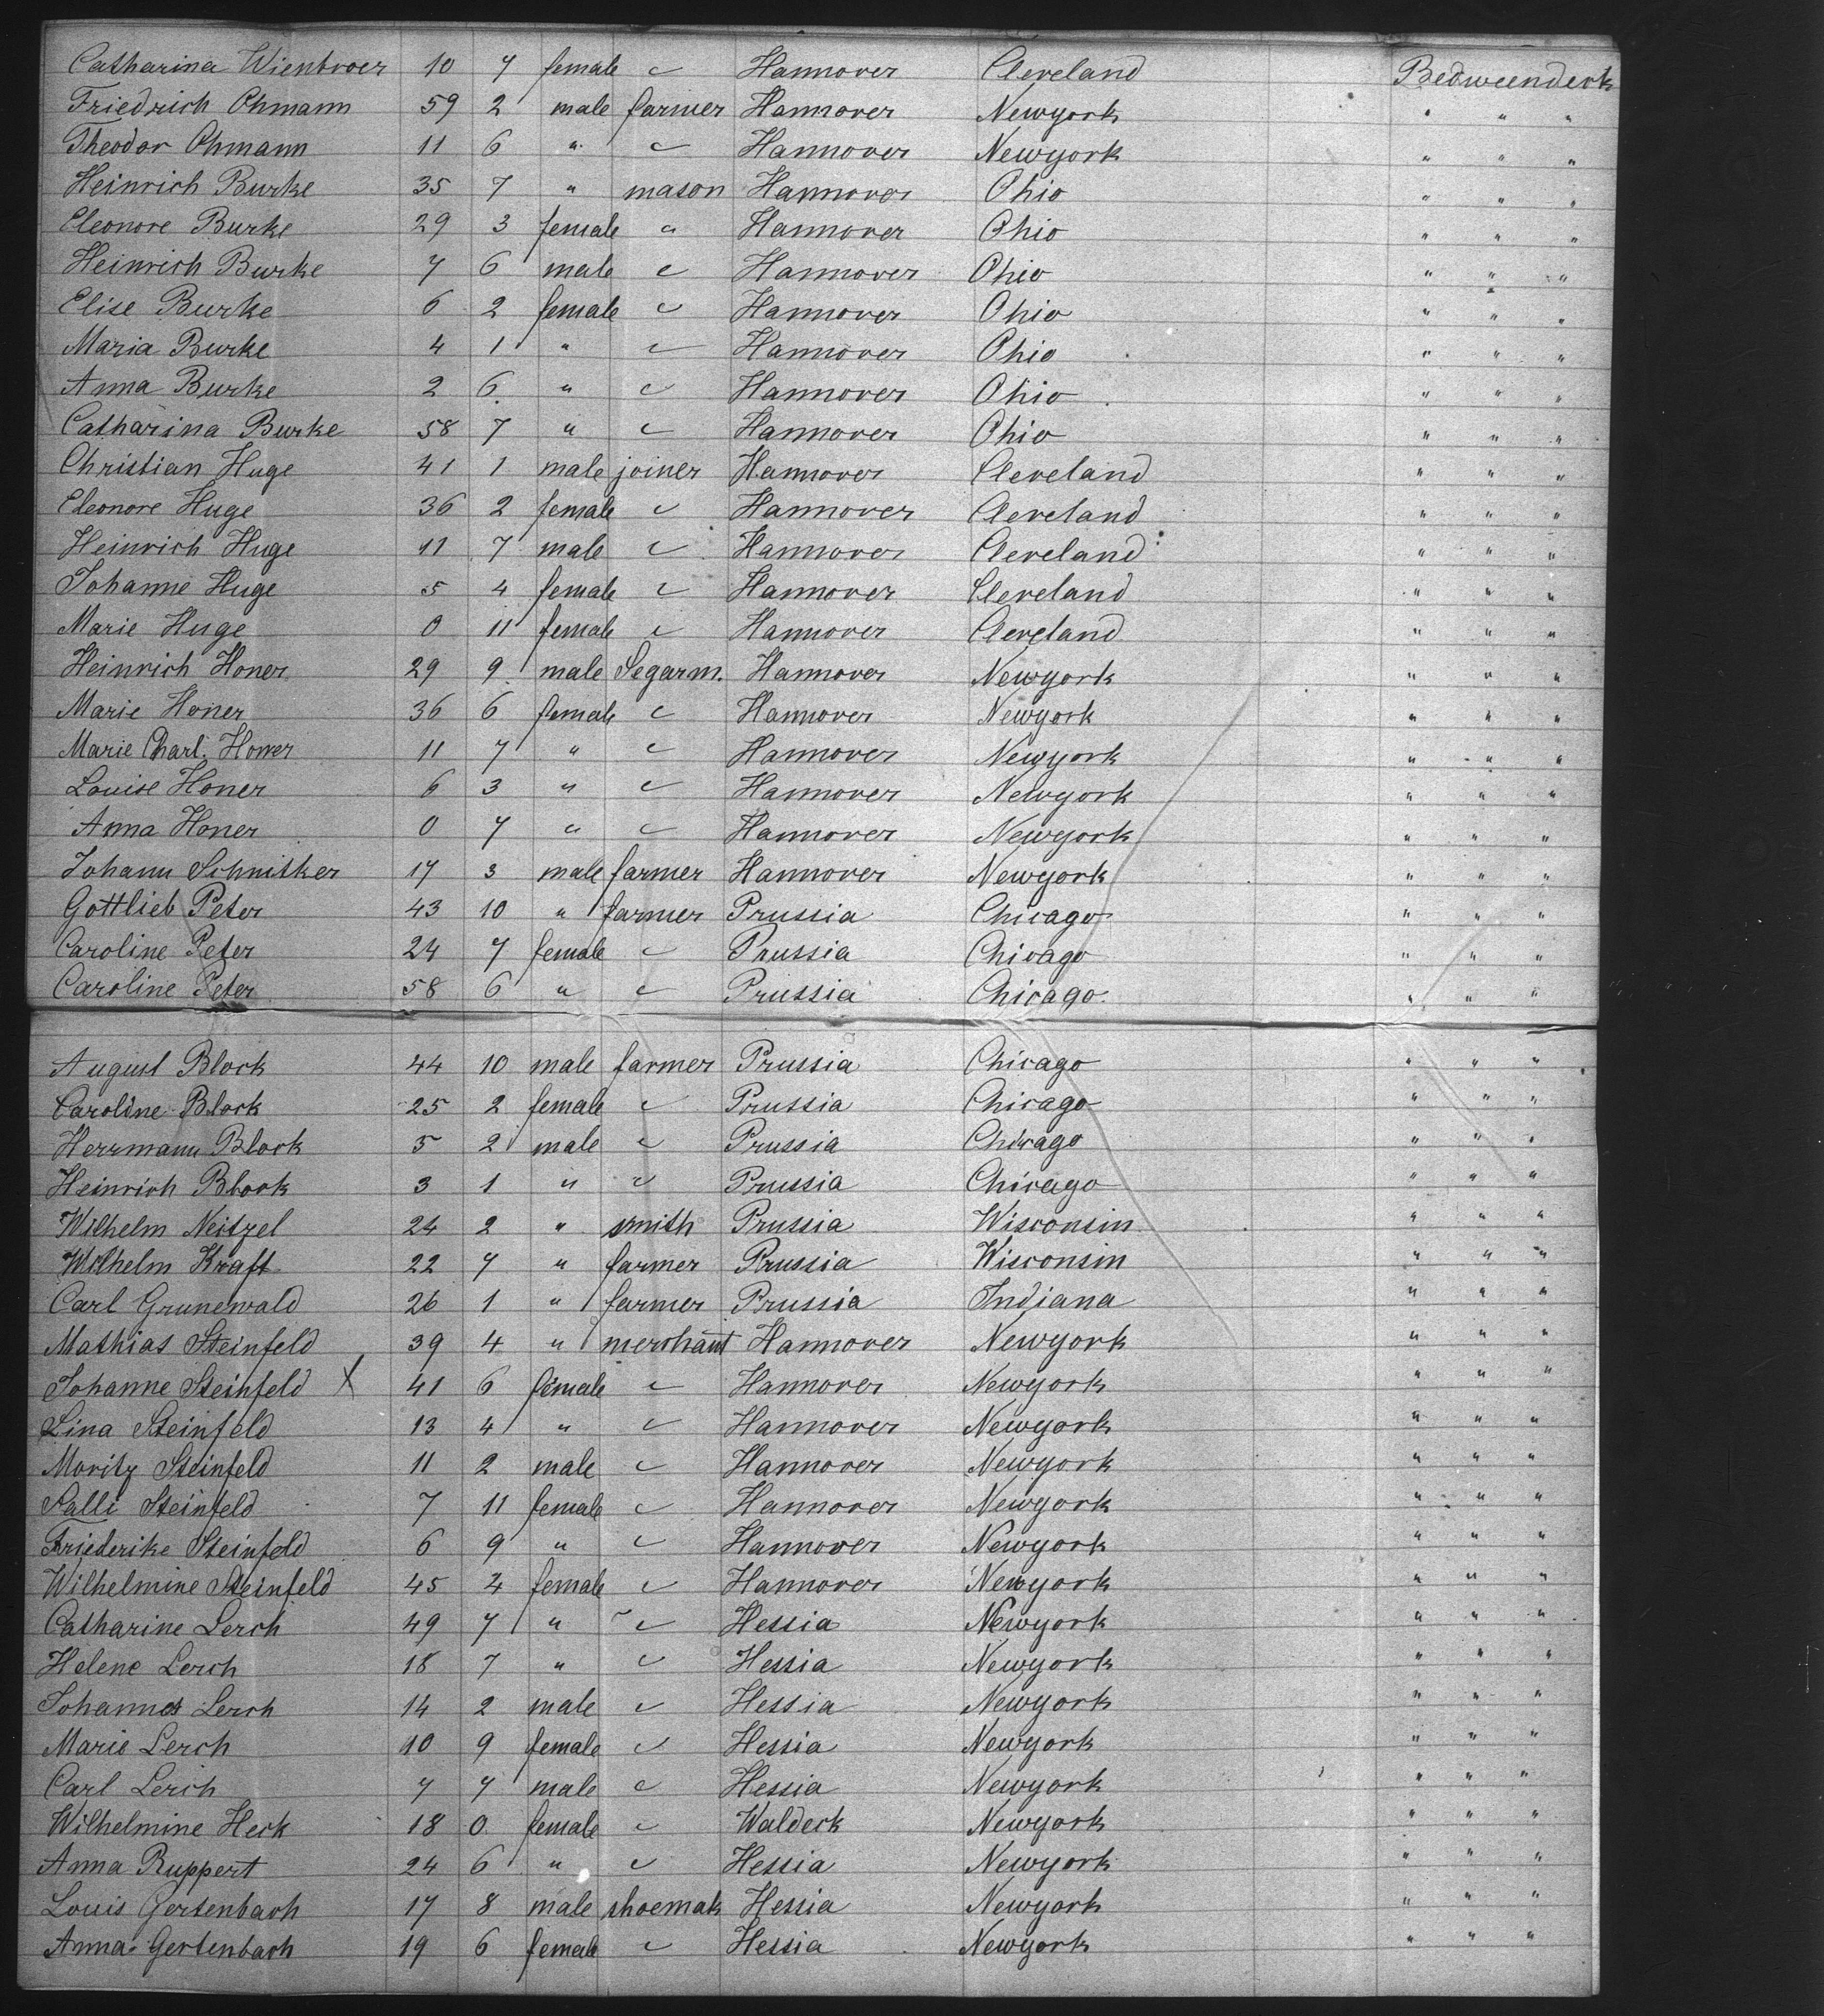 Catharina Wienbroer 10 7 female " Hannover Cleveland Bedweenderk
Friedrich Ohmann 59 2 male farmer Hannover Newyork " " "
Theodor Ohmann 11 6 " " Hannover Newyork " " "
Heinrich Burke 35 7 " mason Hannover Ohio " " "
Eleonore Burke 29 3 female " Hannover Ohio " " "
Heinrich Burke 7 6 male " Hannover Ohio " " "
Elise Burke 6 2 female " Hannover Ohio " " "
Maria Burke 4 1 " " Hannover Ohio " " "
Anna Burke 2 6 " " Hannover Ohio " " "
Catharina Burke 58 7 " " Hannover Ohio " " "
Christian Huge 41 1 male joiner Hannover Cleveland " " "
Eleonore Huge 36 2 female " Hannover Cleveland " " "
Heinrich Huge 11 7 male " Hannover Cleveland " " "
Johanne Huge 5 4 female " Hannover Cleveland " " "
Marie Huge 0 11 female " Hannover Cleveland " " "
Heinrich Honer 29 9 male Segarm. Hannover Newyork " " "
Marie Honer 36 6 female " Hannover Newyork " " "
Marie Charl. Honer 11 7 " " Hannover Newyork " " "
Louise Honer 6 3 " " Hannover Newyork " " "
Anna Honer 0 7 " " Hannover Newyork " " "
Johann Schnitker 17 3 male farmer Hannover Newyork " " "
Gottlieb Peter 43 10 " farmer Prussia Chicago " " "
Caroline Peter 24 7 female " Prussia Chicago " " "
Caroline Peter 58 6 " " Prussia Chicago " " "
August Block 44 10 male farmer Prussia Chicago " " "
Caroline Block 25 2 female " Prussia Chicago " " "
Herrmann Block 5 2 male " Prussia Chicago " " "
Heinrich Block 3 1 " " Prussia Chicago " " "
Wilhelm Neitzel 24 2 " smith Prussia Wisconsin " " "
Wilhelm Kraft 22 7 " farmer Prussia Wisconsin " " "
Carl Grunewald 26 1 " farmer Prussia Indiana " " "
Mathias Steinfeld 39 4 " merchant Hannover Newyork " " "
Johanne Steinfeld X 41 6 female " Hannover Newyork " " "
Lina Steinfeld 13 4 " " Hannover Newyork " " "
Moritz Steinfeld 11 2 male " Hannover Newyork " " "
Salli Steinfeld 7 11 female " Hannover Newyork " " "
Friederike Steinfeld 6 9 " " Hannover Newyork " " "
Wilhelmine Steinfeld 45 4 female " Hannover Newyork " " "
Catharine Lerch 49 7 " " Hessia Newyork " " "
Helene Lerch 18 7 " " Hessia Newyork " " "
Johannes Lerch 14 2 male " Hessia Newyork " " "
Marie Lerch 10 9 female " Hessia Newyork " " "
Carl Lerch 7 7 male " Hessia Newyork " " "
Wilhelmine Heck 18 0 female " Waldeck Newyork " " "
Anna Ruppert 24 6 " " Hessia Newyork " " "
Louis Gertenbach 17 8 male shoemak Hessia Newyork " " "
Anna Gertenbach 19 6 female " Hessia Newyork " " "